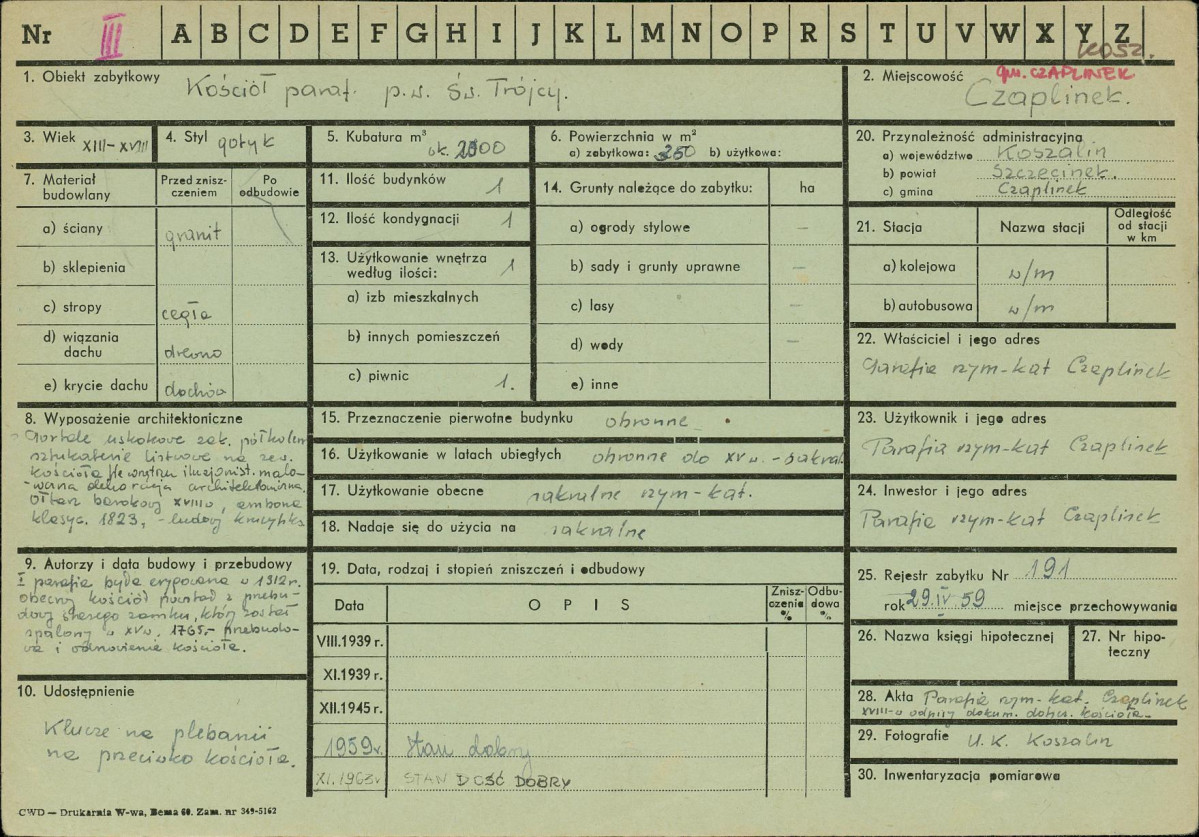 Nr III A B C D E F G H I J K L M N O P R S T U V W X Y Z
KOSZ.
1. Obiekt zabytkowy Kościół paraf. p.w. Św. Trójcy.
2. Miejscowość gm. CZAPLINEK
Czaplinek.
3. Wiek XIII–XVIII
4. Styl gotyk
5. Kubatura m³ ok. 2500
6. Powierzchnia w m²
a) zabytkowa: 250 b) użytkowa:
20. Przynależność administracyjna
a) województwo Koszalin
b) powiat Szczecinek.
c) gmina Czaplinek
7. Materiał budowlany
Przed zniszczeniem
Po odbudowie
a) ściany granit
b) sklepienia
c) stropy cegła
d) wiązania dachu drewno
e) krycie dachu dachów
11. Ilość budynków 1
12. Ilość kondygnacji 1
13. Użytkowanie wnętrza według ilości: 1
a) izb mieszkalnych
b) innych pomieszczeń
c) piwnic 1.
14. Grunty należące do zabytku: ha
a) ogrody stylowe –
b) sady i grunty uprawne –
c) lasy –
d) wody –
e) inne
21. Stacja
Nazwa stacji
Odległość od stacji w km
a) kolejowa w/m
b) autobusowa w/m
22. Właściciel i jego adres
Parafia rzym-kat Czaplinek
8. Wyposażenie architektoniczne
Portale uskokowe zak. półkolem
sztukaterie listwowe na zew.
kościoła. We wnętrzu iluzjonist. malo-
-wana dekoracja architektoniczna.
Ołtarz barokowy XVIII w, ambona
klasyc. 1823, – ludowy krucyfiks
15. Przeznaczenie pierwotne budynku obronne
16. Użytkowanie w latach ubiegłych obronne do XV w. – sakral
17. Użytkowanie obecne sakralne rzym-kat.
18. Nadaje się do użycia na sakralne
23. Użytkownik i jego adres
Parafia rzym-kat Czaplinek
24. Inwestor i jego adres
Parafia rzym-kat Czaplinek
9. Autorzy i data budowy i przebudowy
I parafia była erygowana w 1312 r.
obecny kościół powstał z przebu-
dowy starego zamku, który został
spalony w XV w. 1765.– przebudo-
wa i odnowienie kościoła.
19. Data, rodzaj i stopień zniszczeń i odbudowy
Data
OPIS
Zniszczenia %
Odbudowa %
VIII.1939 r.
XI.1939 r.
XII.1945 r.
1959 r. Stan dobry
XI.1963 r STAN DOŚĆ DOBRY
25. Rejestr zabytku Nr 191
rok 29.IV 59 miejsce przechowywania
26. Nazwa księgi hipotecznej
27. Nr hipoteczny
10. Udostępnienie
Klucze na plebanii
na przeciwko kościoła.
28. Akta Parafia rzym-kat. Czaplinek
XVIII-w odpisy dokum. dotycz. kościoła.
29. Fotografie U.K. Koszalin
30. Inwentaryzacja pomiarowa
CWD — Drukarnia W-wa, Bema 60. Zam. nr 349-5162